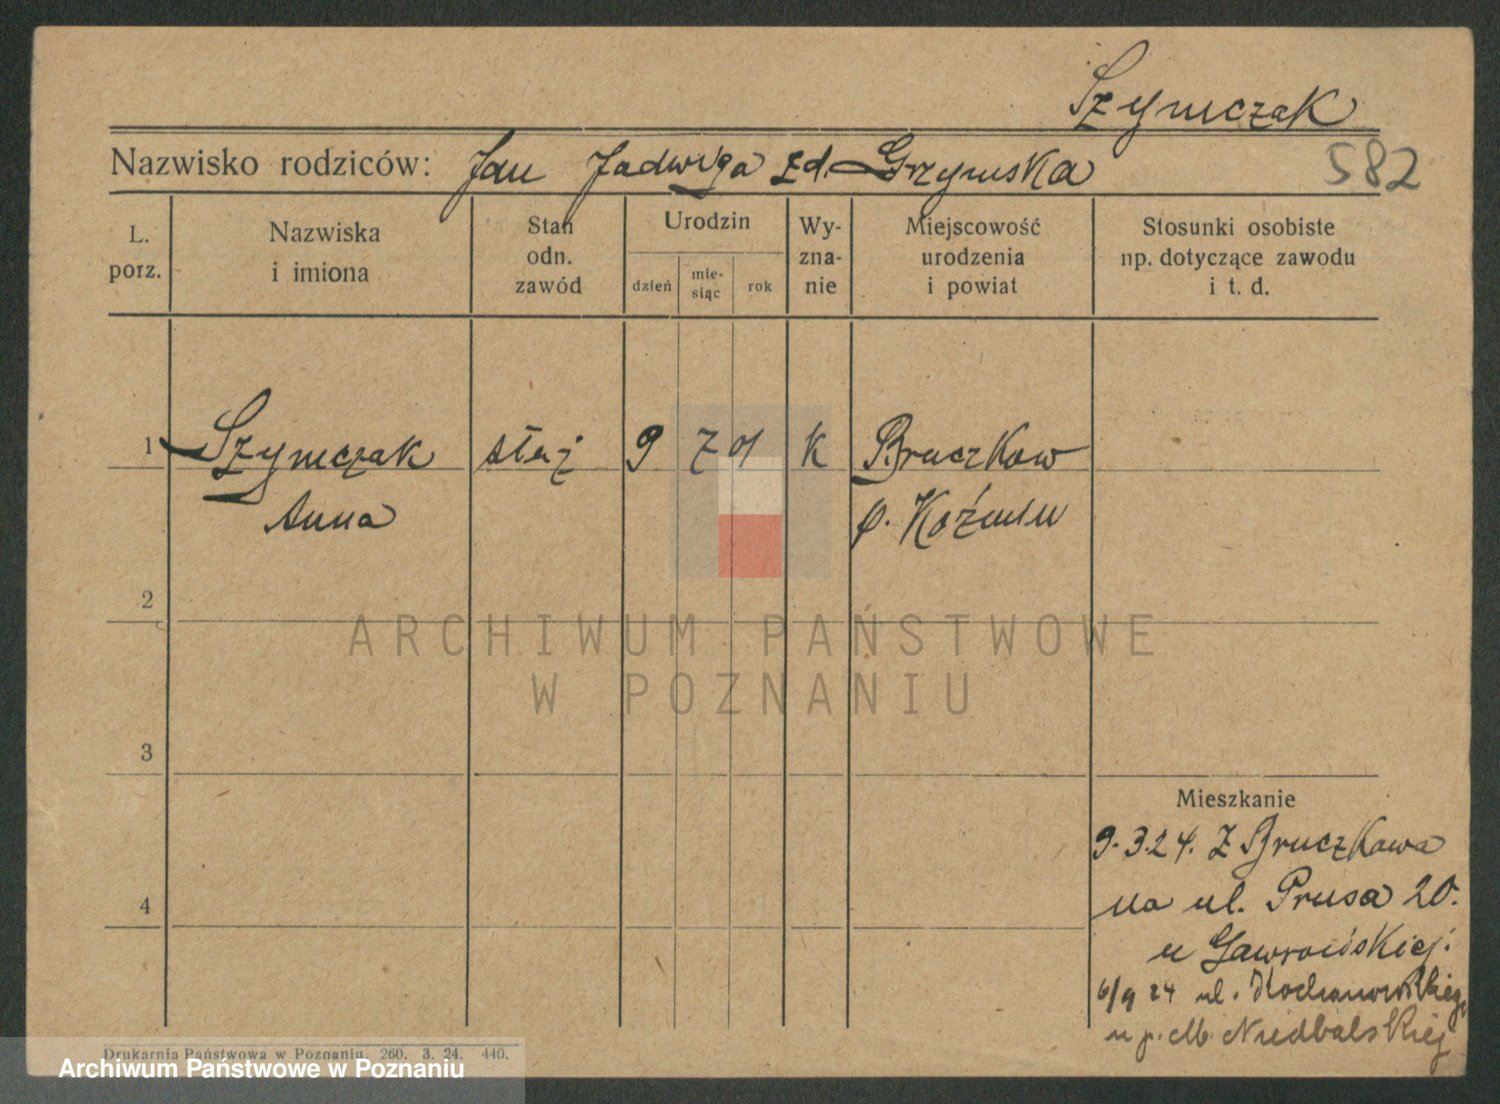 Szymczak
Nazwisko rodziców: Jan Jadwiga zd. Grzymska
582
L. porz.
Nazwiska i imiona
Stan odn. zawód
Urodzin
dzień
mie-
siąc
rok
Wy-
zna-
nie
Miejscowość
urodzenia
i powiat
Stosunki osobiste
np. dotyczące zawodu
i t. d.
1 Szymczak służ 9 7 01 k Bruczkow
Anna p. Koźmin
2
ARCHIWUM PAŃSTWOWE
W POZNANIU
3
Mieszkanie
9.3.24. z Bruczkowa
4
na ul. Prusa 20.
u Gawrońskiej.
6/9 24 ul. Kochanowskiego
u p. M. Niedbalskiej
Drukarnia Państwowa w Poznaniu. 260. 3. 24. 440.
Archiwum Państwowe w Poznaniu